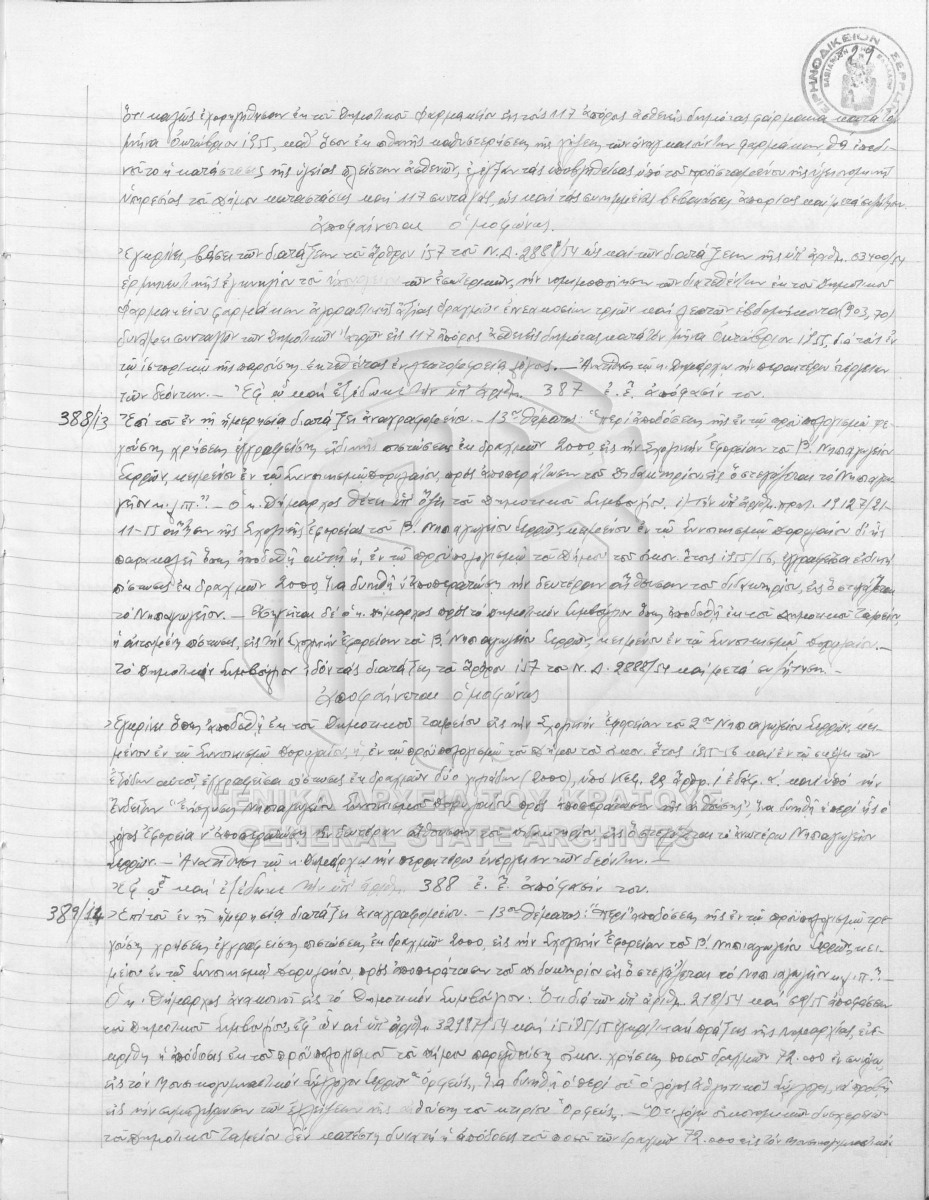 29
ΕΙΡΗΝΟΔΙΚΕΙΟΝ ΣΕΡΡΩΝ
Ὅτι καλῶς ἐχορηγήθησαν ἐκ τοῦ Δημοτικοῦ Φαρμακείου εἰς τοὺς 117 ἀπόρους ἀσθενεῖς δημότας φάρμακα κατὰ τὸν
μῆνα Ὀκτώβριον 1955, καθ' ὅσον ἐκ πιθανῆς καθυστερήσεως τῆς λήψεως τῶν ἀναγκαιούντων φαρμάκων θὰ ἐπεδει-
νοῦτο ἡ κατάστασις τῆς ὑγείας πλείστων ἀσθενῶν, τὰς ὑποβληθείσας ὑπὸ τοῦ προϊσταμένου τῆς ὑγειονομικῆς
Ὑπηρεσίας τοῦ Δήμου καταστάσεις καὶ 117 συνταγάς, ὡς καὶ τὰς συνημμένας βεβαιώσεις ἀπορίας καὶ μετὰ συζήτησιν
ἀποφαίνεται ὁμοφώνως.
Ἐγκρίνει, βάσει τῶν διατάξεων τοῦ ἄρθρου 157 τοῦ Ν.Δ. 2888/54 ὡς καὶ τῶν διατάξεων τῆς ὑπ' ἀριθμ. 53400/54
ἑρμηνευτικῆς ἐγκυκλίου τοῦ Ὑπουργείου τῶν Ἐσωτερικῶν, τὴν νομιμοποίησιν τῶν διατεθέντων ἐκ τοῦ Δημοτικοῦ
Φαρμακείου φαρμάκων ἀγοραστικῆς ἀξίας δραχμῶν ἐνεακοσίων τριῶν καὶ λεπτῶν ἑβδομήκοντα (903,70)
δυνάμει συνταγῶν τῶν Δημοτικῶν Ἰατρῶν εἰς 117 ἀπόρους ἀσθενεῖς δημότας κατὰ τὸν μῆνα Ὀκτώβριον 1955, διὰ τοὺς ἐν
τῷ ἱστορικῷ τῆς παρούσης ἐκτεθέντας λόγους. — Ἀνατίθησι τῷ κ. Δημάρχῳ τὴν περαιτέρω ἐνέργειαν
τῶν δεόντων. — Ἐφ' ᾧ καὶ ἐξεδόθη ἡ ὑπ' ἀριθμ. 387 ἐ. ἔ. ἀπόφασίν του.
388/13 Ἐπὶ τοῦ ἐν τῇ ἡμερησίᾳ διατάξει ἀναγραφομένου. — 13ου θέματος: "Περὶ ἀποδόσεως τῆς ἐν τῷ προϋπολογισμῷ τρε-
χούσης χρήσεως ἐγγραφείσης εἰδικῆς πιστώσεως ἐκ δραχμῶν 2000 εἰς τὴν Σχολικὴν Ἐφορείαν τοῦ Β. Νηπιαγωγείου
Σερρῶν, κειμένου ἐν τῷ Συνοικισμῷ, πρὸς ἀποπεράτωσιν τοῦ διδακτηρίου εἰς ὃ στεγάζεται τὸ Νηπιαγω-
γεῖον κ.λ.π." — Ὁ κ. Δήμαρχος θέτει ὑπ' ὄψει τοῦ Δημοτικοῦ Συμβουλίου. 1) Τὴν ὑπ' ἀριθμ. πρωτ. 19127/21-
11-55 αἴτησιν τῆς Σχολικῆς Ἐφορείας τοῦ Β. Νηπιαγωγείου Σερρῶν, κειμένου ἐν τῷ Συνοικισμῷ δι' ἧς
παρακαλεῖ ὅπως ἀποδοθῇ αὐτῇ ἡ, ἐν τῷ προϋπολογισμῷ τοῦ Δήμου τοῦ οἰκον. ἔτους 1955/56, ἐγγραφεῖσα εἰδικὴ
πίστωσις ἐκ δραχμῶν 2000, ἵνα δυνηθῇ ν' ἀποπερατώσῃ τὴν δευτέραν αἴθουσαν τοῦ διδακτηρίου, εἰς ὃ στεγάζεται
τὸ Νηπιαγωγεῖον. — Εἰσηγεῖται δὲ ὁ κ. Δήμαρχος πρὸς τὸ Δημοτικὸν Συμβούλιον ὅπως ἀποδοθῇ ἐκ τοῦ Δημοτικοῦ Ταμείου
ἡ αἰτουμένη πίστωσις, εἰς τὴν Σχολικὴν Ἐφορείαν τοῦ Β. Νηπιαγωγείου Σερρῶν, κειμένου ἐν τῷ Συνοικισμῷ. —
Τὸ Δημοτικὸν Συμβούλιον ἰδὸν τὰς διατάξεις τοῦ ἄρθρου 157 τοῦ Ν.Δ. 2888/54 καὶ μετὰ συζήτησιν. —
ἀποφαίνεται ὁμοφώνως
Ἐγκρίνει ὅπως ἀποδοθῇ ἐκ τοῦ Δημοτικοῦ Ταμείου εἰς τὴν Σχολικὴν Ἐφορείαν τοῦ 2ου Νηπιαγωγείου Σερρῶν, κει-
μένου ἐν τῷ Συνοικισμῷ, ἡ ἐν τῷ προϋπολογισμῷ τοῦ Δήμου τοῦ οἰκον. ἔτους 1955-56 καὶ ἐν τῷ σκέλει τῶν
ἐξόδων αὐτοῦ, ἐγγραφεῖσα πίστωσις ἐκ δραχμῶν δύο χιλιάδων (2000), ὑπὸ Κεφ. 22 ἄρθρ. 1 ἐδάφ. α'. καὶ ὑπὸ τὴν
ἔνδειξιν "Ἐνίσχυσις Νηπιαγωγείου Συνοικισμοῦ πρὸς ἀποπεράτωσιν τῆς αἰθούσης", ἵνα δυνηθῇ ἡ περὶ ἧς ὁ
λόγος Ἐφορεία ν' ἀποπερατώσῃ τὴν δευτέραν αἴθουσαν τοῦ διδακτηρίου εἰς ὃ στεγάζεται τὸ ἀνωτέρω Νηπιαγωγεῖον
Σερρῶν. — Ἀνατίθησι τῷ κ. Δημάρχῳ τὴν περαιτέρω ἐνέργειαν τῶν δεόντων. —
Ἐφ' ᾧ καὶ ἐξέδωκε τὴν ὑπ' ἀριθμ. 388 ἐ. ἔ. ἀπόφασίν του.
389/14 Ἐπὶ τοῦ ἐν τῇ ἡμερησίᾳ διατάξει ἀναγραφομένου. — 13ου θέματος: "Περὶ ἀποδόσεως τῆς ἐν τῷ προϋπολογισμῷ τρε-
χούσης χρήσεως ἐγγραφείσης πιστώσεως ἐκ δραχμῶν 2000 εἰς τὴν Σχολικὴν Ἐφορείαν τοῦ Β' Νηπιαγωγείου Σερρῶν, κει-
μένου ἐν τῷ Συνοικισμῷ, πρὸς ἀποπεράτωσιν τοῦ διδακτηρίου εἰς ὃ στεγάζεται τὸ Νηπιαγωγεῖον κ.λ.π." —
Ὁ κ. Δήμαρχος ἀνακοινοῖ εἰς τὸ Δημοτικὸν Συμβούλιον: Ὅτι διὰ τῶν ὑπ' ἀριθμ. 218/54 καὶ 69/55 ἀποφάσεων
τοῦ Δημοτικοῦ Συμβουλίου, ἐφ' ὧν αἱ ὑπ' ἀριθμ. 32997/54 καὶ 15195/55 ἐγκριτικαὶ πράξεις τῆς Νομαρχίας, ἐνε-
κρίθη ἡ ἀπόδοσις ἐκ τοῦ προϋπολογισμοῦ τοῦ Δήμου παρελθούσης οἰκον. χρήσεως ποσοῦ δραχμῶν 72.000 ἐν συνόλῳ,
εἰς τὸν Μουσικογυμναστικὸν Σύλλογον Σερρῶν "Ὀρφεύς", ἵνα δυνηθῇ ὁ περὶ οὗ ὁ λόγος ἀθλητικὸς Σύλλογος, νὰ προβῇ
εἰς τὴν συμπλήρωσιν τῶν ἐλλείψεων τῆς αἰθούσης τοῦ κτιρίου "Ὀρφεύς". — Ὅτι λόγῳ οἰκονομικῶν δυσχερειῶν
τοῦ Δημοτικοῦ Ταμείου δὲν κατέστη δυνατὴ ἡ ἀπόδοσις τοῦ ποσοῦ τῶν δραχμῶν 72.000 εἰς τὸν Μουσικογυμναστικὸν
ΓΕΝΙΚΑ ΑΡΧΕΙΑ ΤΟΥ ΚΡΑΤΟΥΣ
GENERAL STATE ARCHIVES